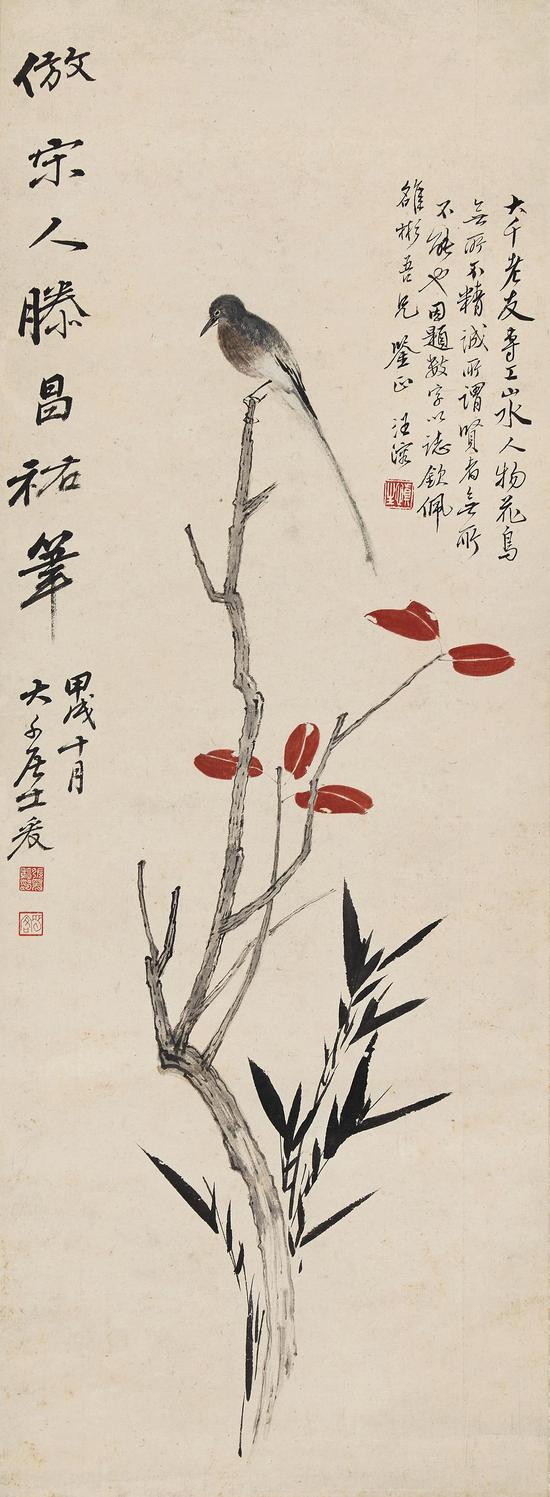 大千老友專工山水人物花鳥
無所不精誠所謂賢者無所
不能也因題數字以誌欽佩
雒彬吾兄鑒正 汪溶
倣宋人滕昌祐筆
甲戌十月
大千居士爰